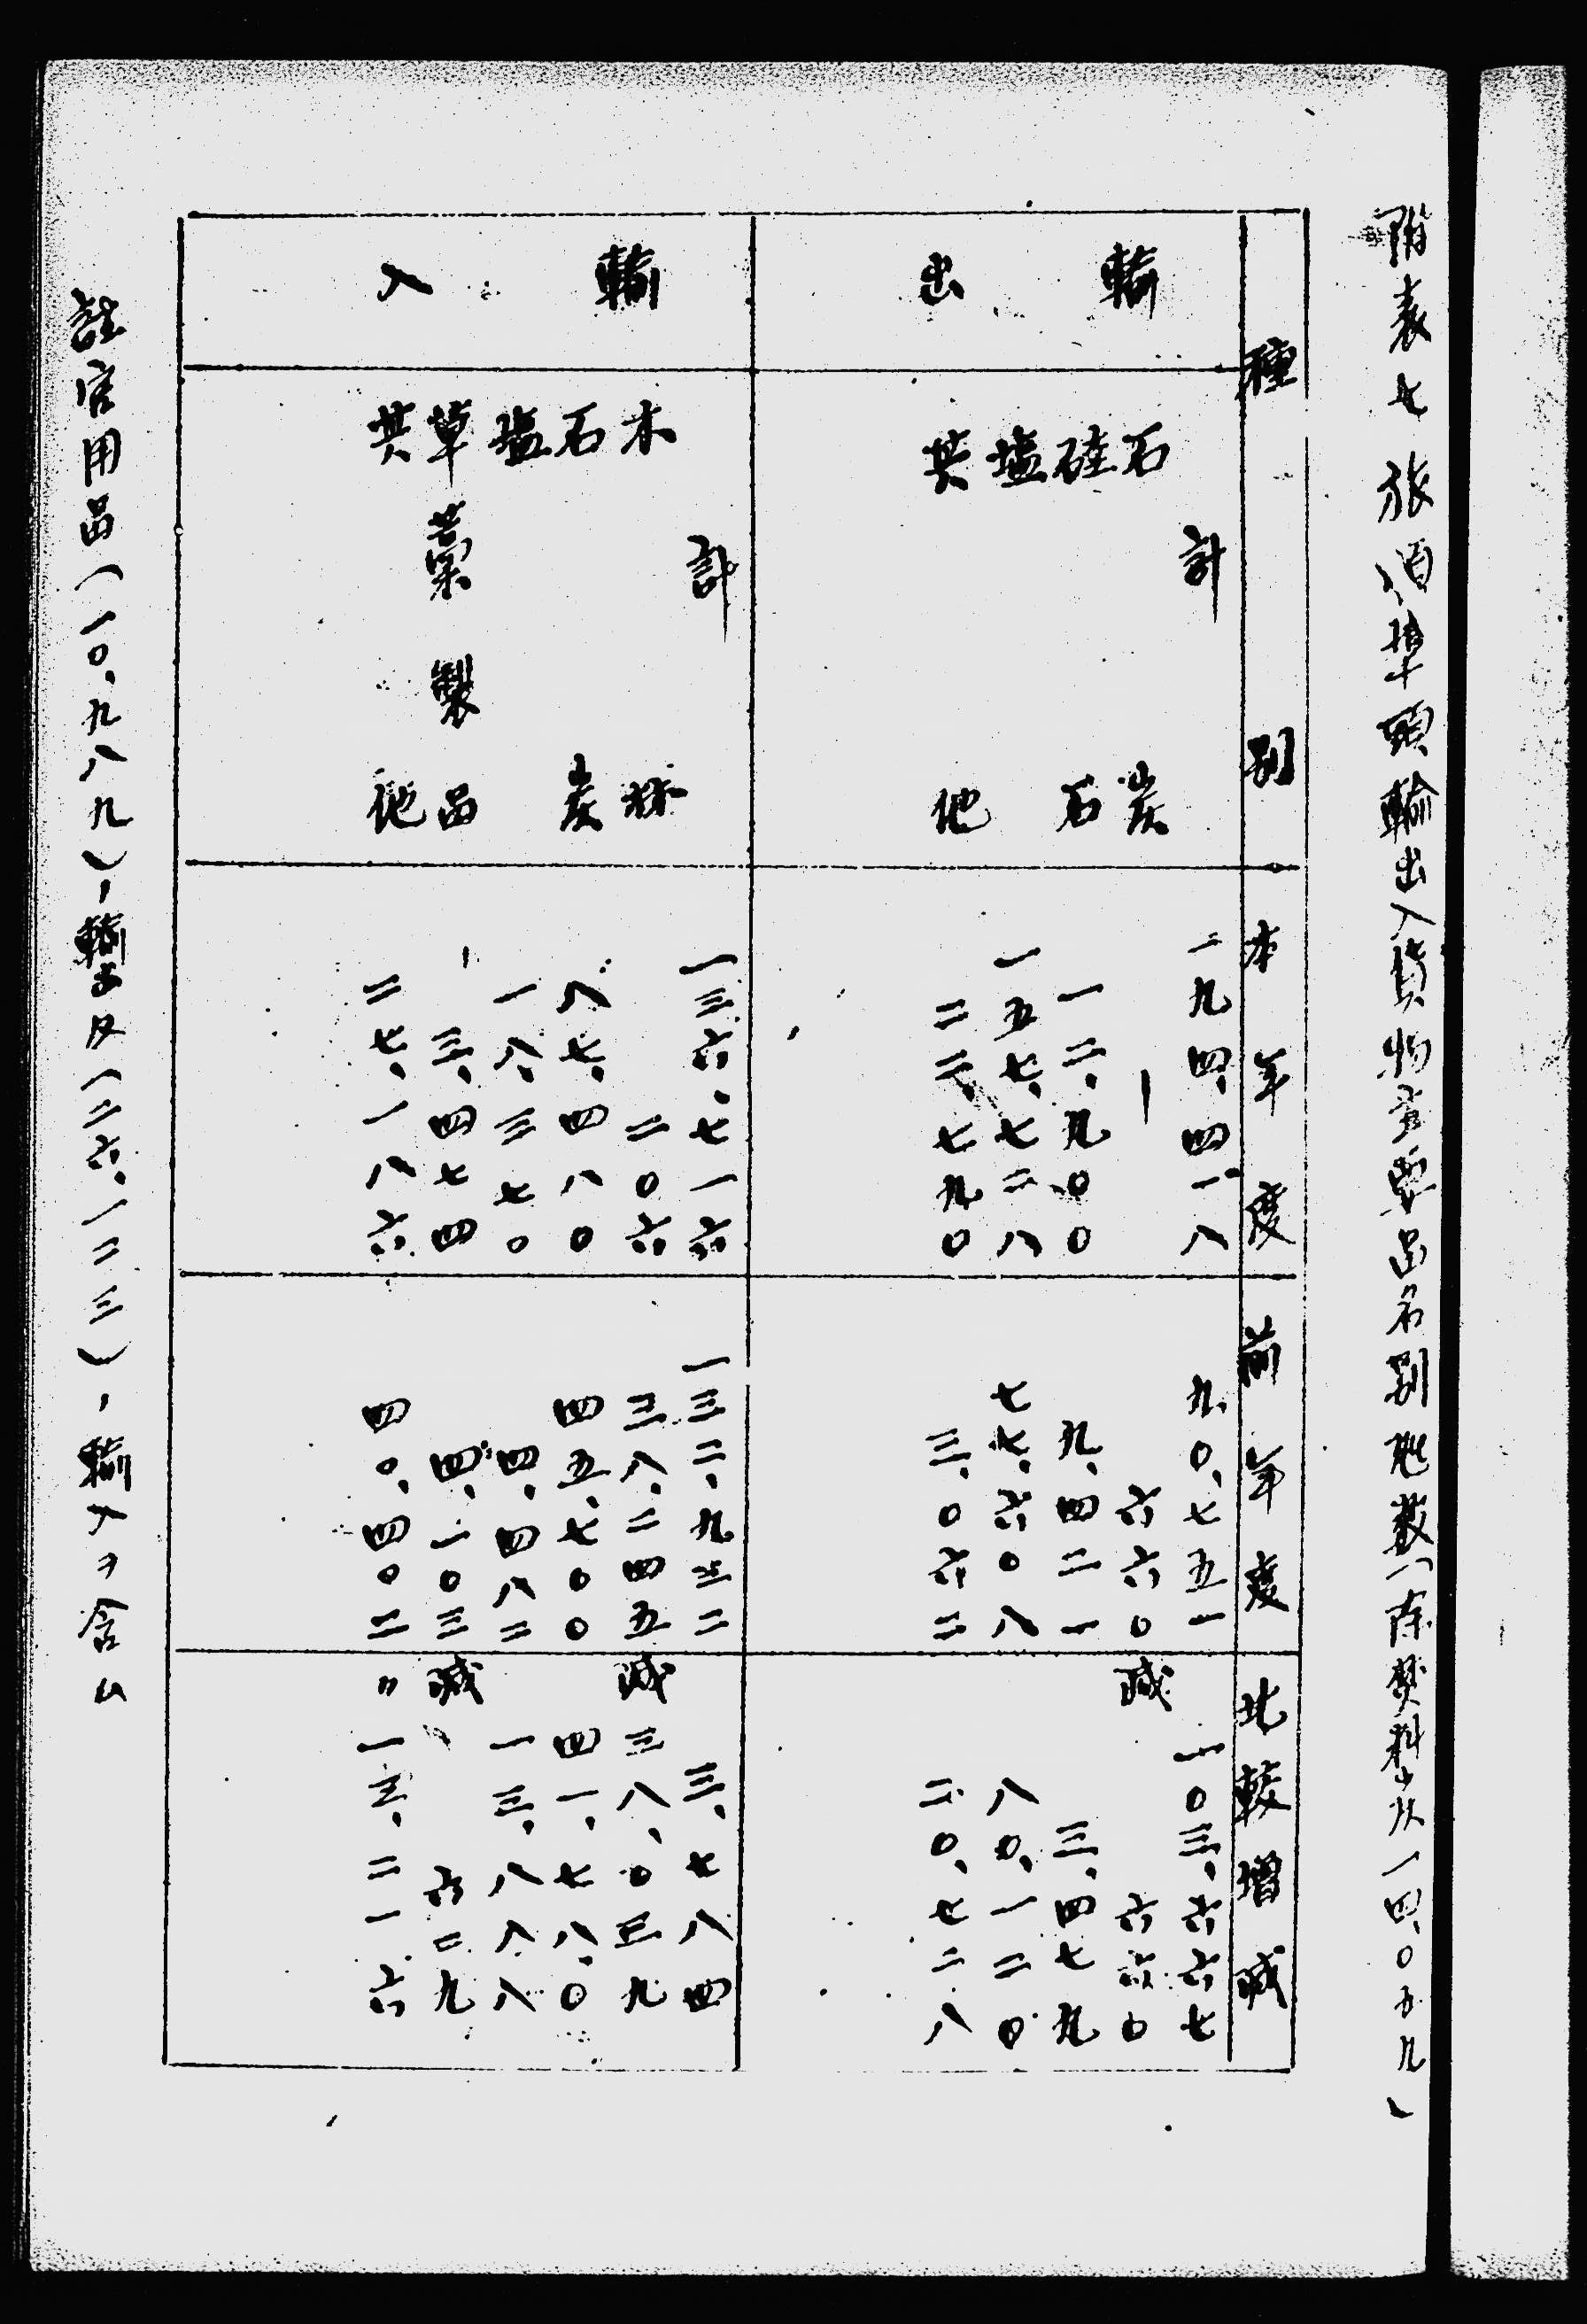 附表七 旅順埠頭輸出入貨物重要品名別屯数(除焚料炭一四、〇五九)
種別 本年度 前年度 比較増減
輸出
計 一九四、四一八 九〇、七五一 一〇三、六六七
石炭 ー 六六〇 減 六六〇
硅石 一二、九〇〇 九、四二一 三、四七九
塩 一五七、七二八 七七、六〇八 八〇、一二〇
其他 二三、七九〇 三、〇六二 二〇、七二八
輸入
計 一三六、七一六 一三二、九三二 三、七八四
木材 二〇六 三八、二四五 減三八、〇三九
石炭 八七、四八〇 四五、七〇〇 四一、七八〇
塩 一八、三七〇 四、四八二 一三、八八八
草藁製品 三、四七四 四、一〇三 減 六二九
其他 二七、一八六 四〇、四〇二 〃一三、二一六
註官用品(一〇、九八九)、輸出及(二六、一二三)、輸入ヲ含ム